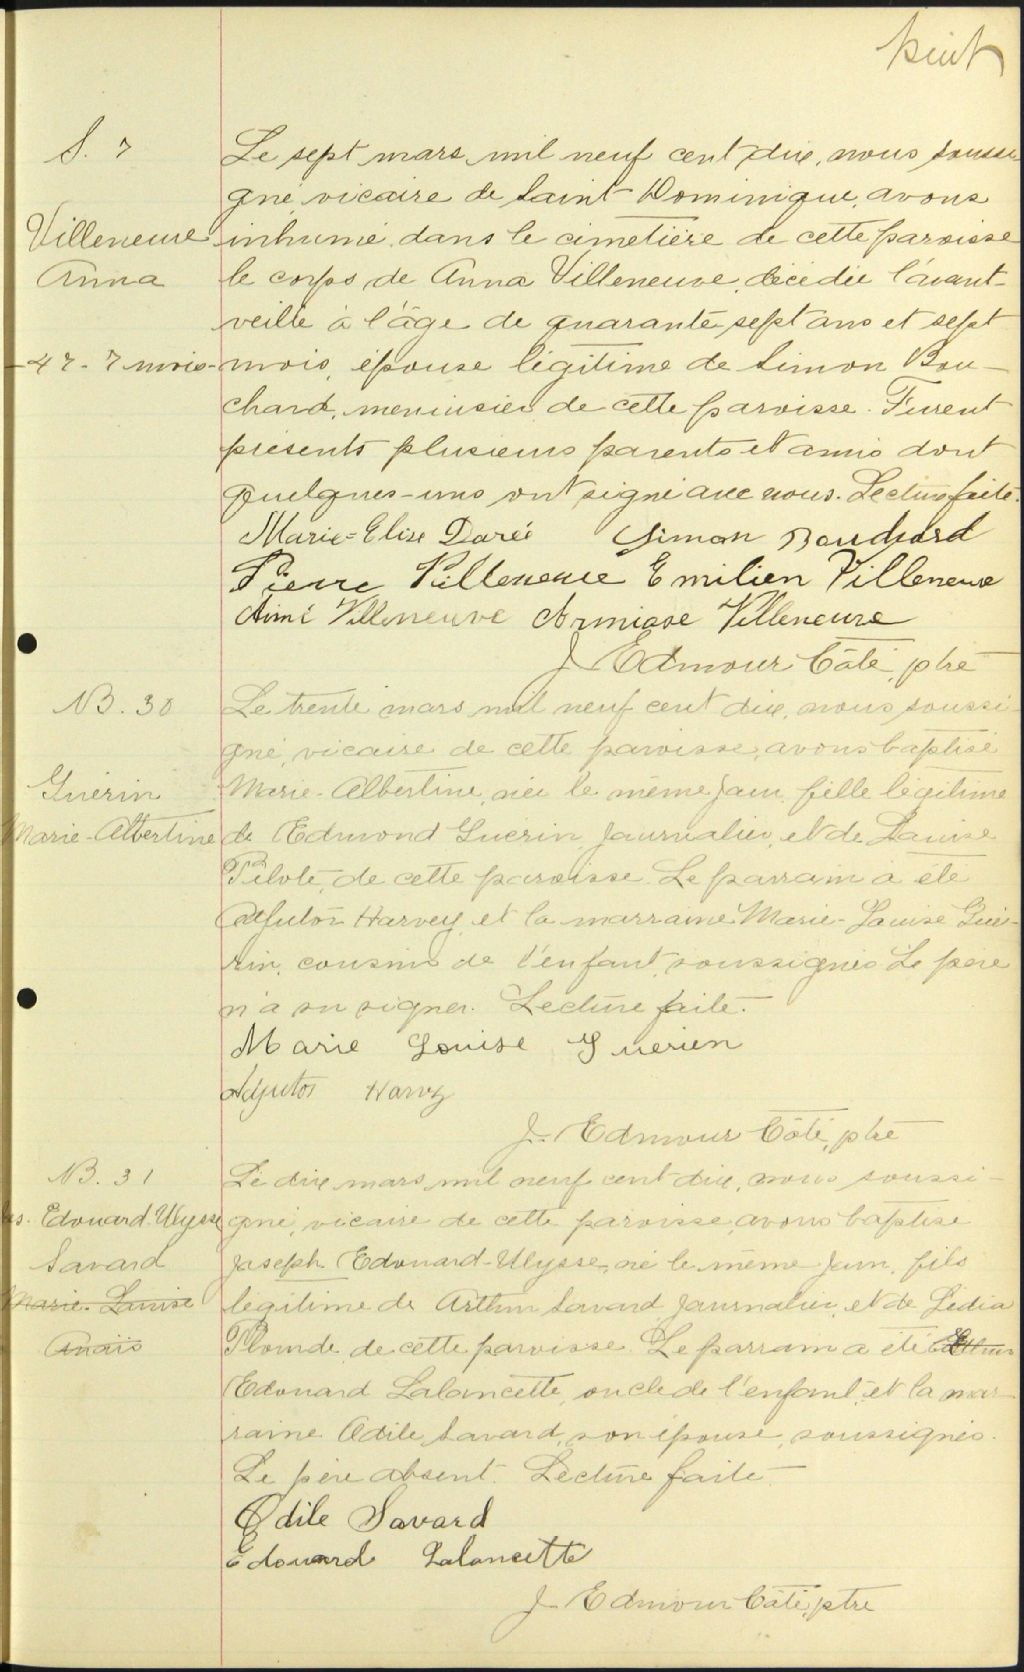 huit
S. 7
Le sept mars mil neuf cent dix, nous soussi-
gné, vicaire de Saint Dominique, avons
Villeneuve
inhumé dans le cimetière de cette paroisse
Anna
le corps de Anna Villeneuve, décédée l'avant-
veille à l'âge de quarante-sept ans et sept
- 47 - 7 mois -
mois, épouse légitime de Simon Bou-
chard, menuisier de cette paroisse. Furent
présents plusieurs parents et amis dont
quelques-uns ont signé avec nous. Lecture faite.
Marie-Elise Doré Simon Bouchard
Pierre Villeneuve Emilien Villeneuve
Aimé Villeneuve Armiase Villeneuve
J. Edmour Côté, ptre
B. 30
Le trente mars mil neuf cent dix, nous soussi-
gné, vicaire de cette paroisse, avons baptisé
Guérin
Marie-Albertine, née le même jour, fille légitime
Marie-Albertine
de Edmond Guérin, journalier, et de Louise
Pilote, de cette paroisse. Le parrain a été
Adjutor Harvey et la marraine Marie-Louise Gué-
rin, cousins de l'enfant, soussignés. Le père
n'a su signer. Lecture faite.
Marie Louise Guerien
Adjutor Harvey
J. Edmour Côté, ptre
B. 31
Le dix mars mil neuf cent dix, nous soussi-
Jos. Edouard-Ulysse
gné, vicaire de cette paroisse, avons baptisé
Savard
Joseph Edouard-Ulysse, né le même jour, fils
Marie-Louise
légitime de Arthur Savard, journalier, et de Lédia
Anaïs
Plourde, de cette paroisse. Le parrain a été
Edouard Lalancette, oncle de l'enfant, et la mar-
raine Odile Savard, son épouse, soussignés.
Le père absent. Lecture faite
Odile Savard
Edouard Lalancette
J. Edmour Côté, ptre